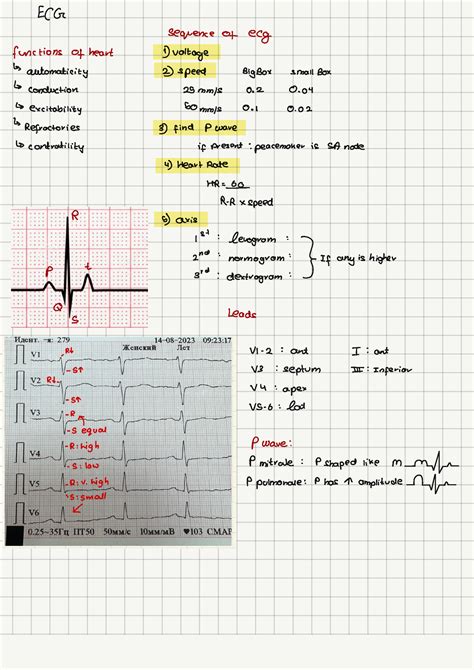 ECG
functions of heart
↳ automaticity
↳ conduction
↳ excitability
↳ Refractories
↳ contratility
Sequence of ecg
1) voltage
2) speed BigBox small Box
25 mm/s 0.2 0.04
50 mm/s 0.1 0.02
3) find P wave
if present : peacemaker is SA node
4) Heart Rate
HR = 60
R-R x speed
5) axis
1st : levogram :
2nd : normogram :
3rd : dextrogram :
If any is higher
R
P
t
Q
S
Leads
V1-2 : ant I : ant
V3 : septum III : Inferior
V4 : apex
V5-6 : lad
Идент. 279 Женский 14-08-2023 Лет 09:23:17
V1
R↓
-S↑
V2
R↓
-S↑
V3
-R
-S equal
V4
-R: high
-S: low
V5
-R: v. high
-S: small
V6
0.25~35Гц ПТ50 50мм/с 10мм/мВ ♥103 СМАР
P wave:
P mitrale : P shaped like m
P pulmonale: P has ↑ amplitude